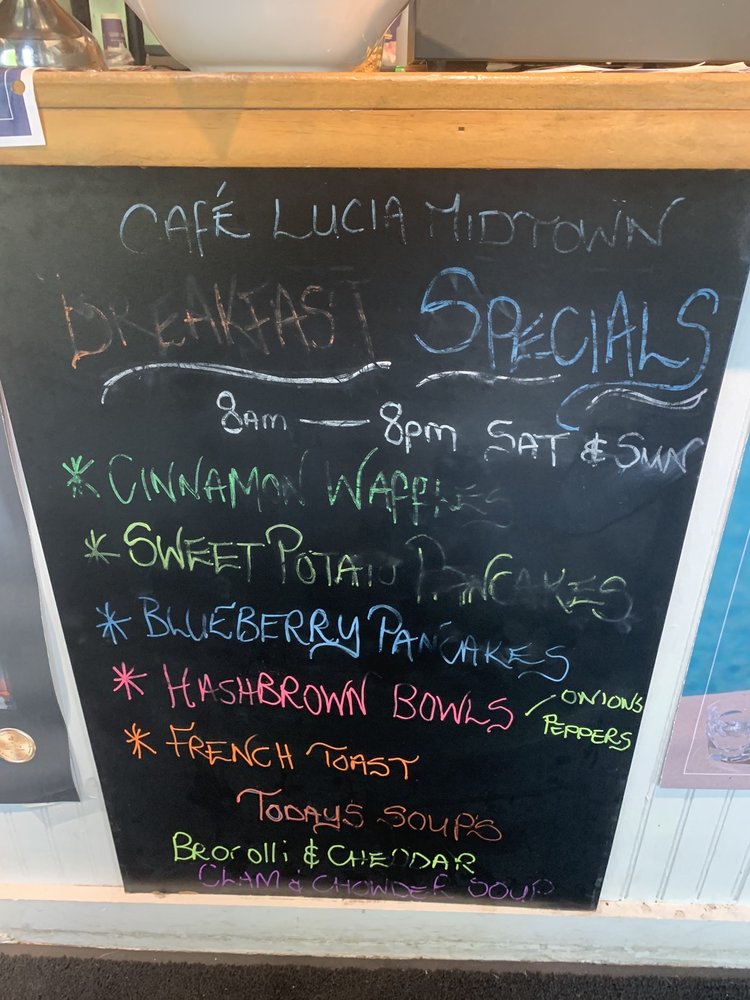 CAFÉ LUCIA MIDTOWN
BREAKFAST SPECIALS
8AM — 8PM SAT & SUN
* CINNAMON WAFFLES
* SWEET POTATO PANCAKES
* BLUEBERRY PANCAKES
* HASHBROWN BOWLS / ONIONS
PEPPERS
* FRENCH TOAST
TODAYS SOUP'S
BROCOLLI & CHEDDAR
CLAM & CHOWDER SOUP